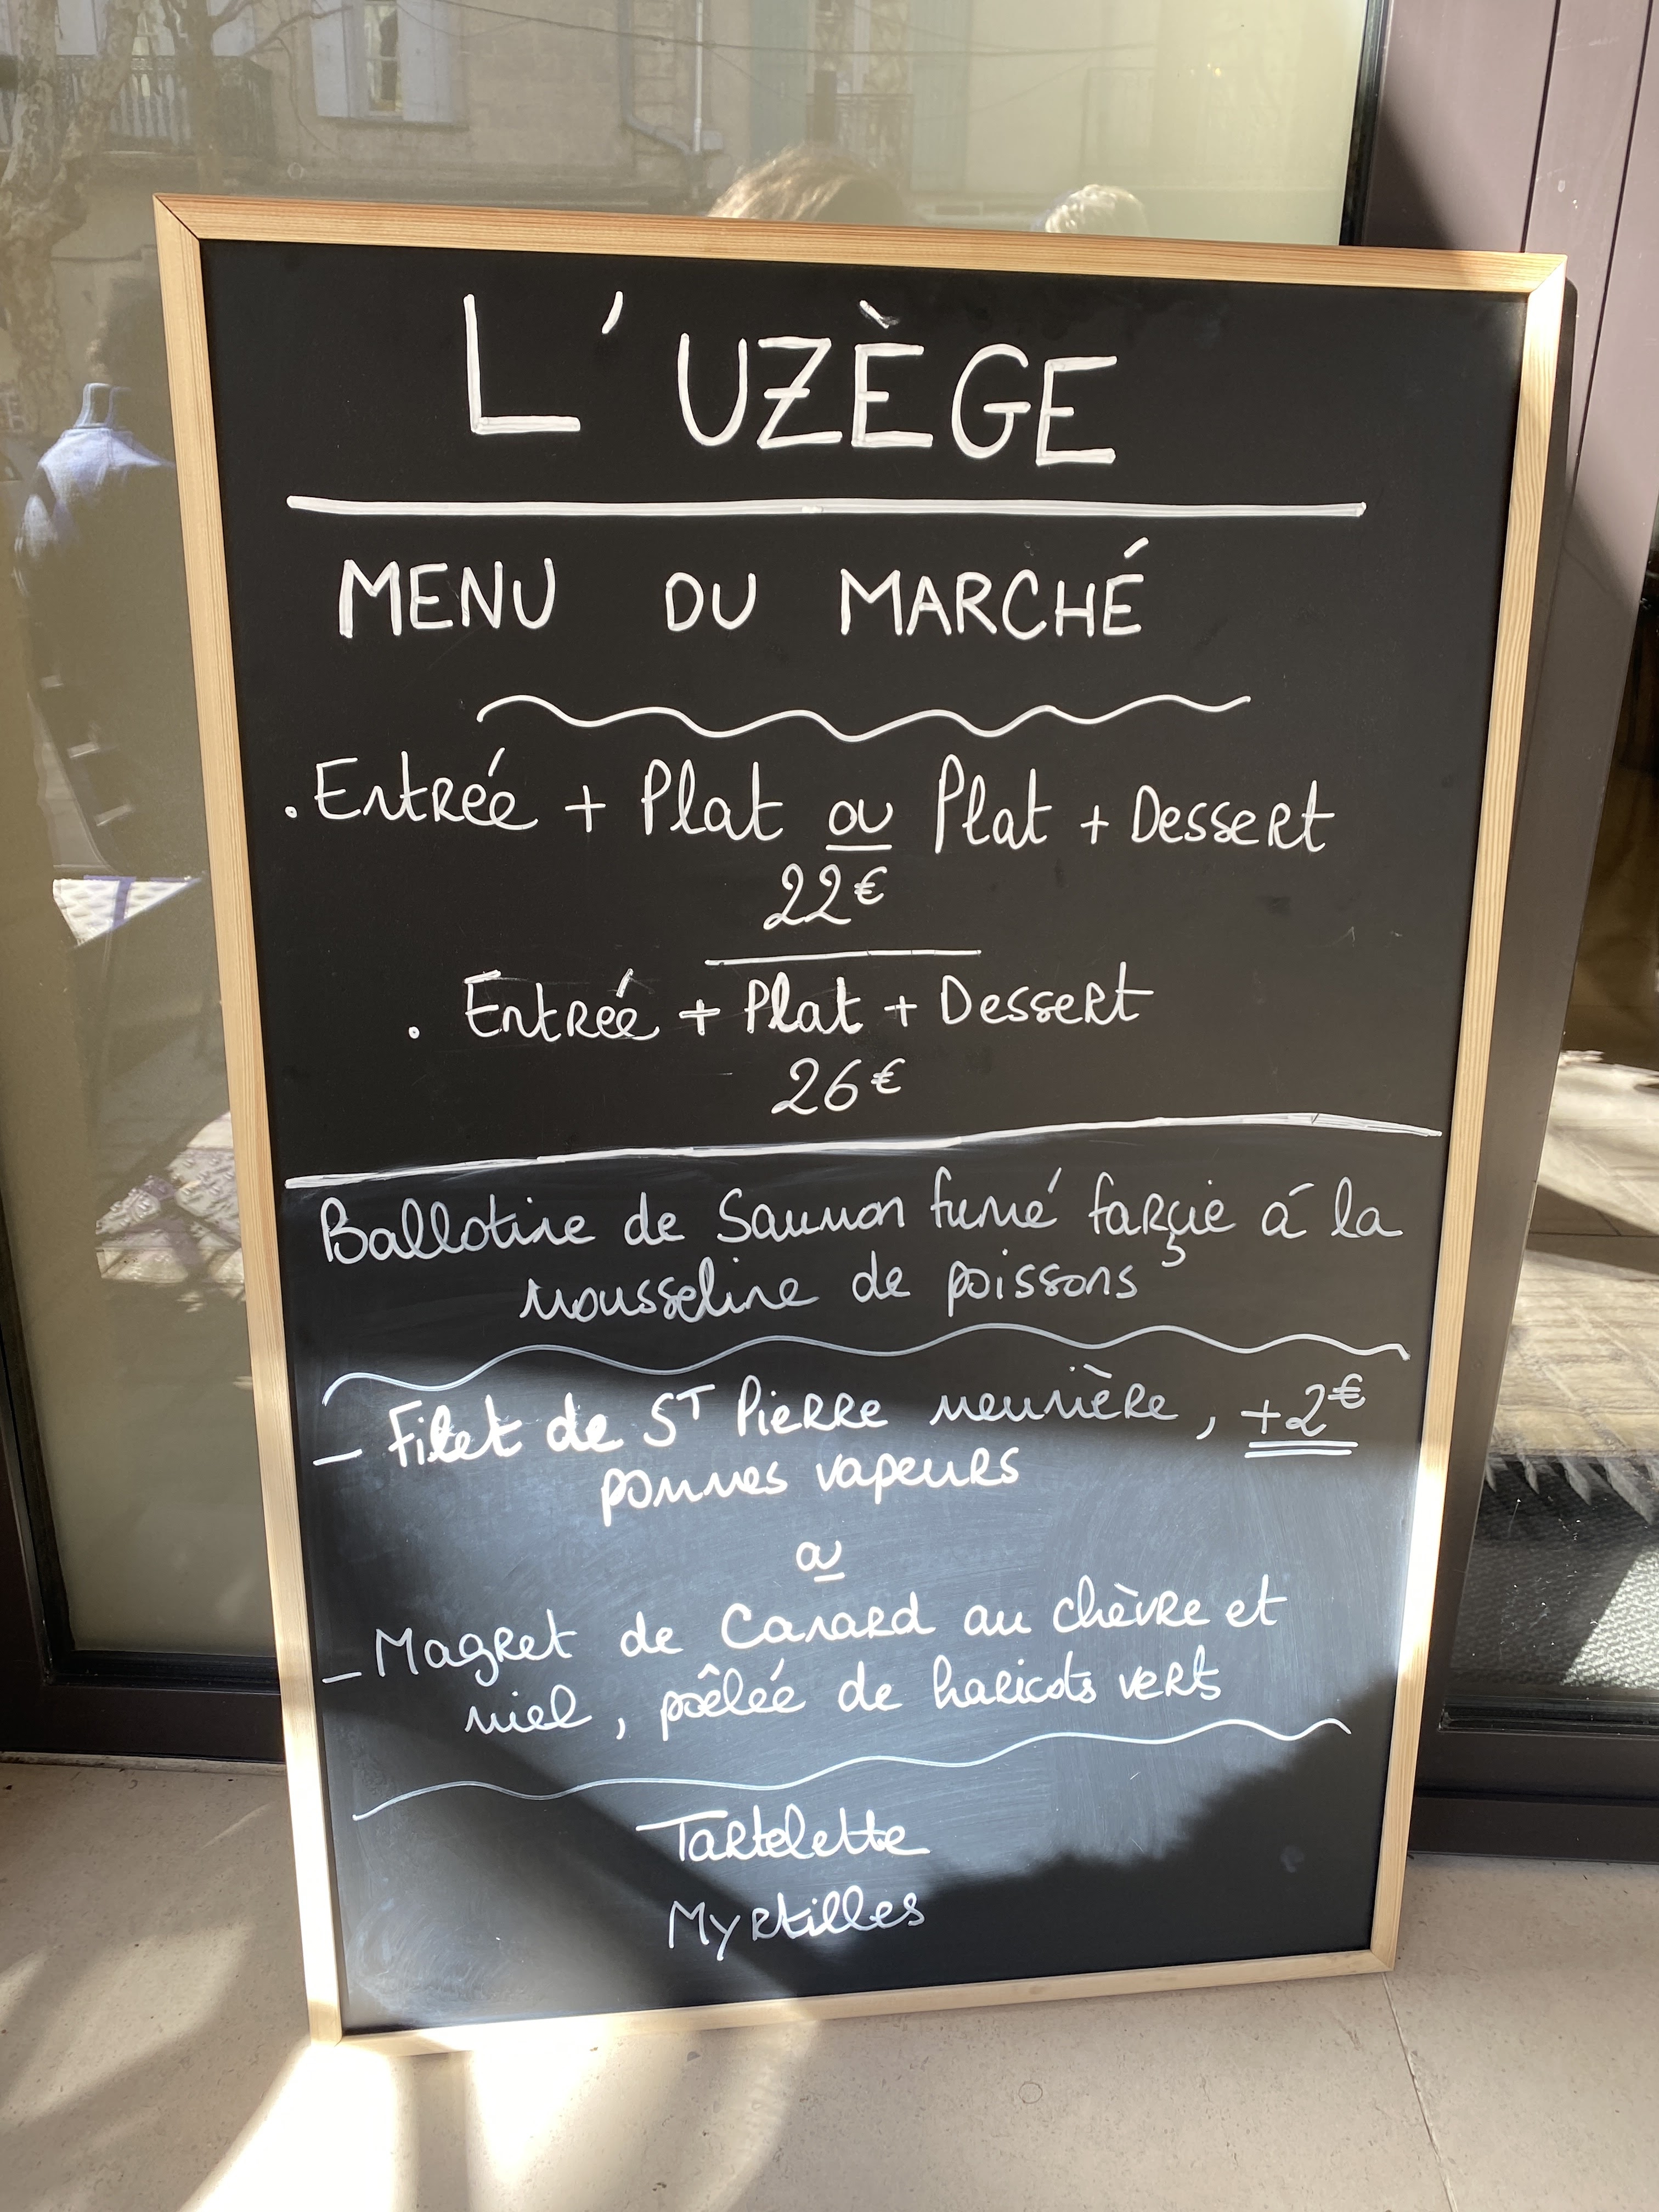 L'UZÈGE
MENU DU MARCHÉ
. Entrée + Plat ou Plat + Dessert
22€
. Entrée + Plat + Dessert
26€
Ballotine de Saumon fumé farçie á la
mousseline de poissons
- Filet de ST Pierre meunière, +2€
pommes vapeurs
ou
- Magret de Canard au chèvre et
miel, poêlée de haricots verts
Tartelette
Myrtilles